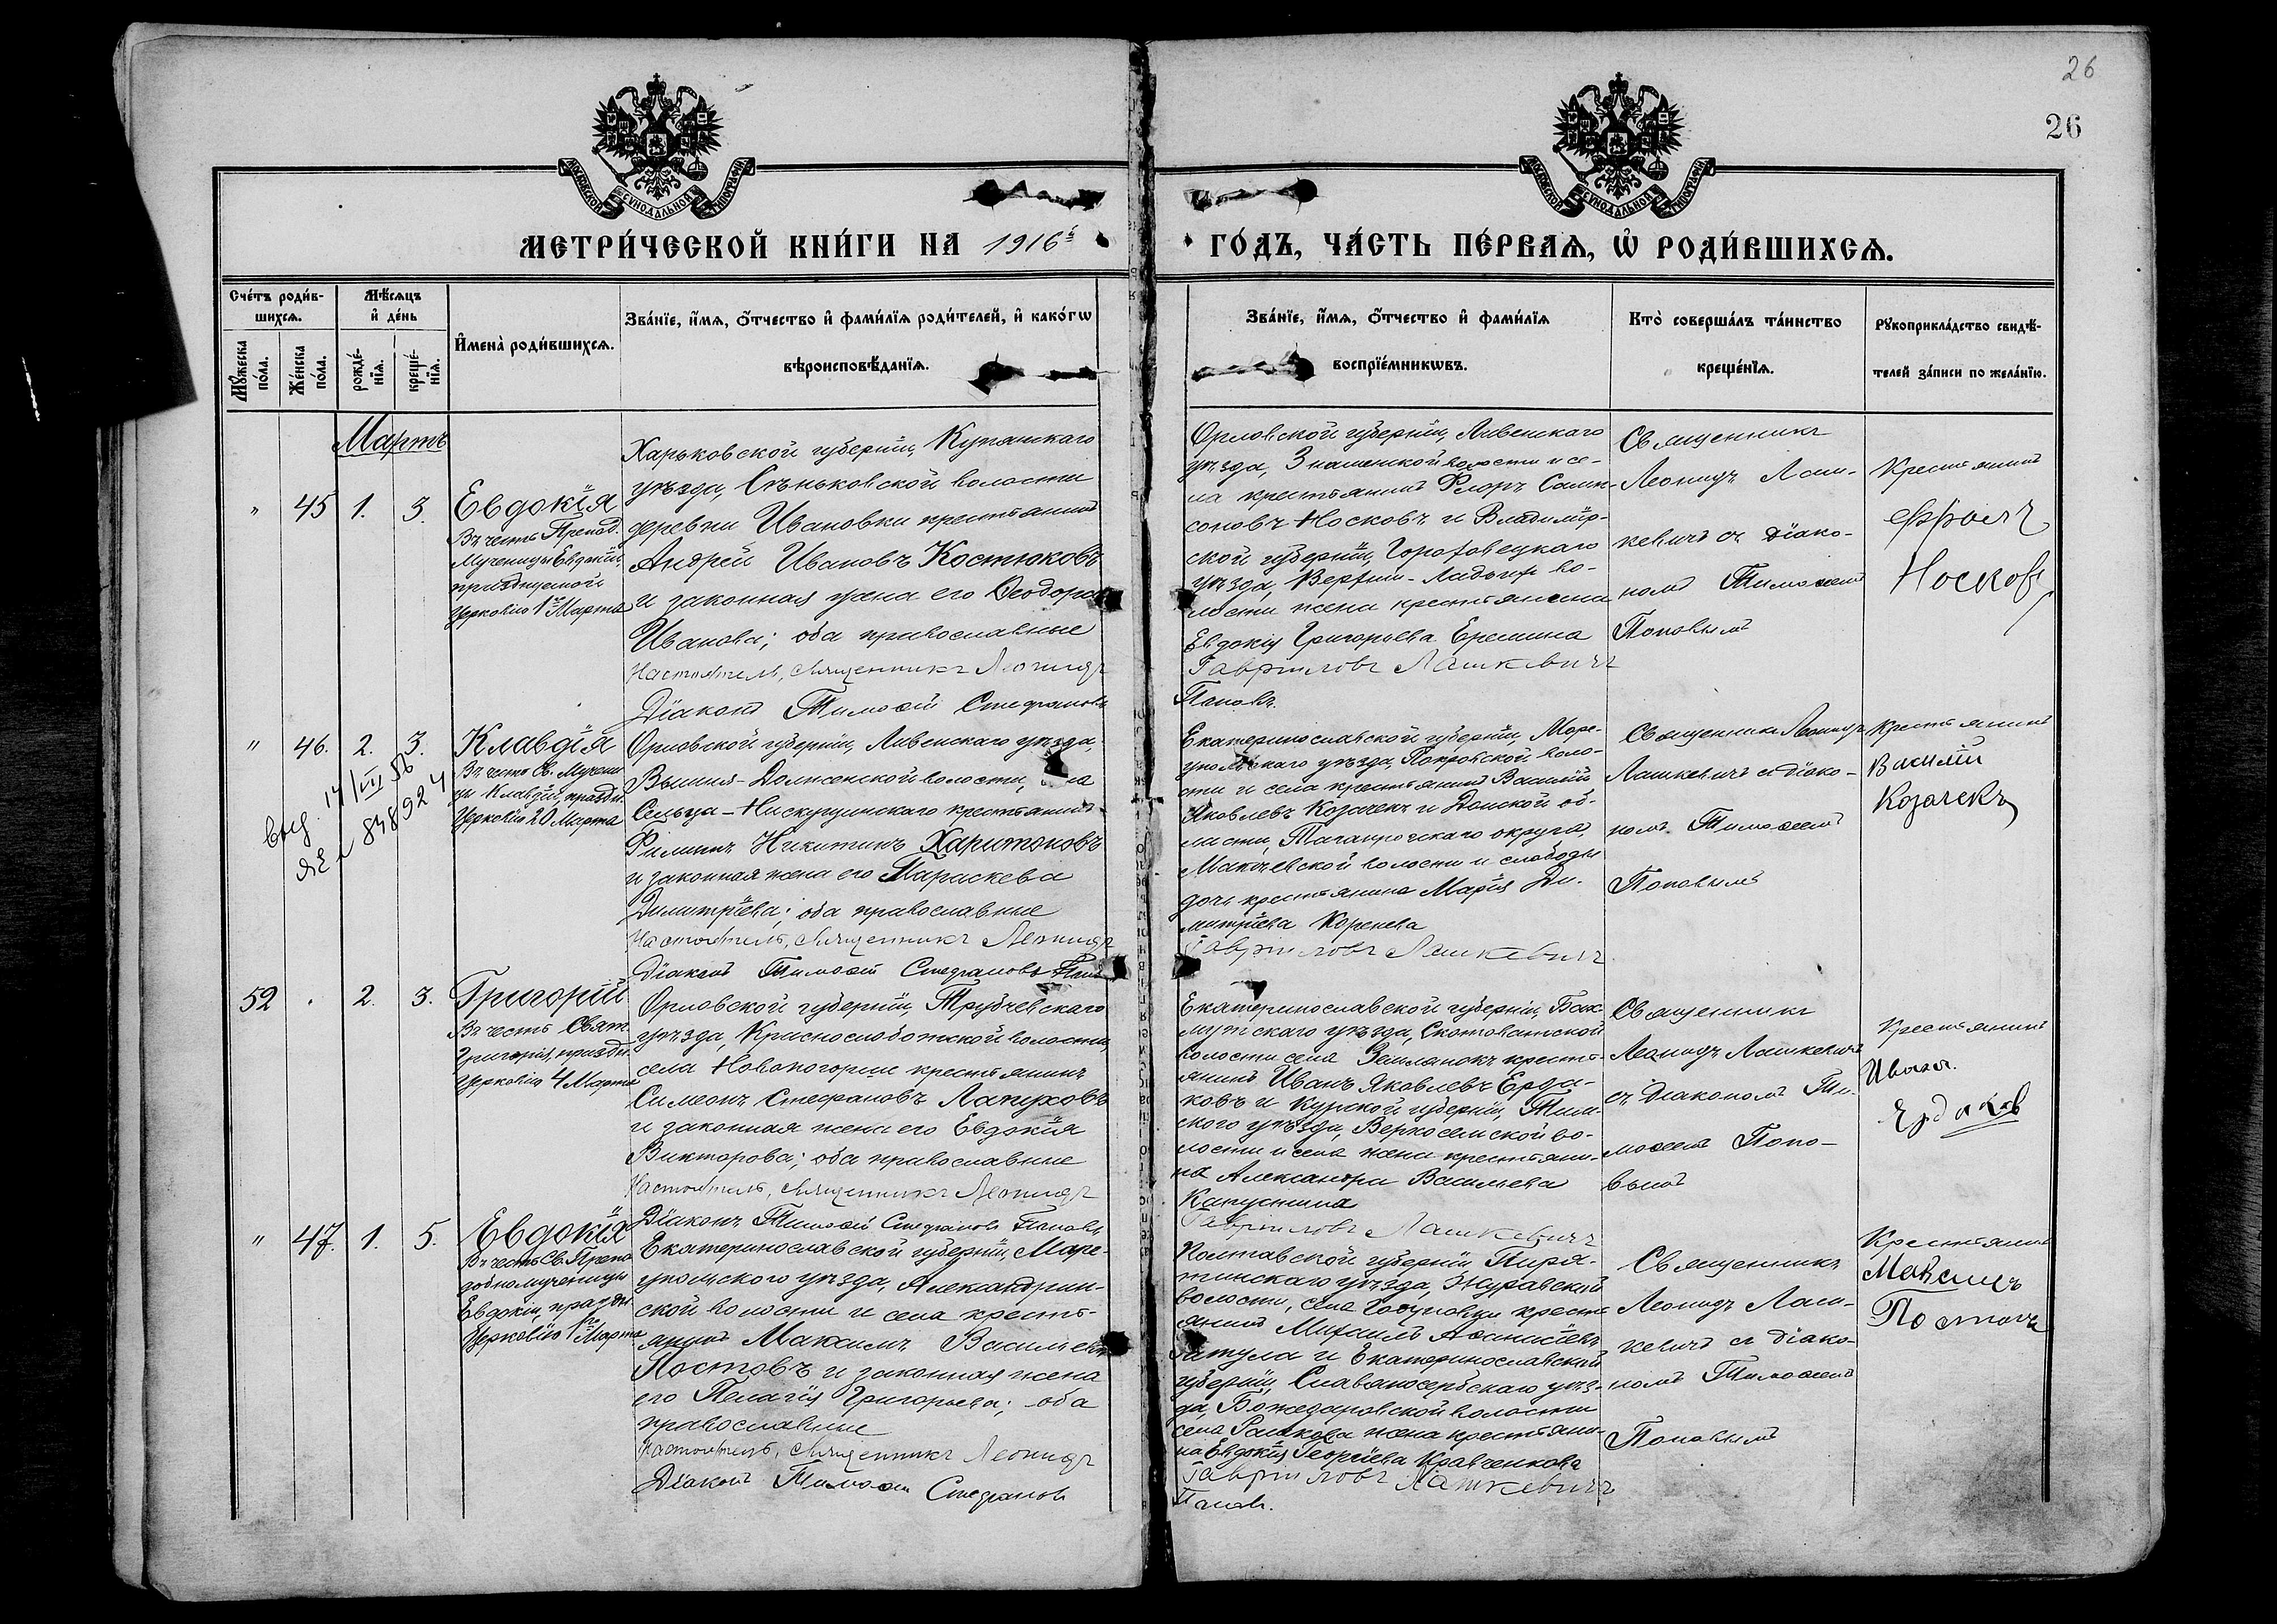 26
26
МОСКОВСКОЙ СѴНОДАЛЬНОЙ ТИПОГРАФІИ
МОСКОВСКОЙ СѴНОДАЛЬНОЙ ТИПОГРАФІИ
МЕТРИ́ЧЕСКОЙ КНИ́ГИ НА 1916й
ГО́ДЪ, ЧА́СТЬ ПЕ́РВАѦ, Ѡ҆ РОДИ́ВШИХСѦ.
Сче́тъ роди́в-
шихсѧ.
Мꙋ́жеска
по́ла.
Же́нска
по́ла.
Мѣ́сѧцъ
и҆ де́нь
рожде́-
нїѧ.
креще́-
нїѧ.
И҆мена̀ роди́вшихсѧ.
Зва́нїе, и҆́мѧ, ѻ҆́тчество и҆ фами́лїѧ роди́телей, и҆ како́гѡ
вѣроисповѣ́данїѧ.
Зва́нїе, и҆́мѧ, ѻ҆́тчество и҆ фами́лїѧ
воспрїе́мникѡвъ.
Кто̀ соверша́лъ та́инство
креще́нїѧ.
Рꙋкоприкла́дство свидѣ́-
телей за́писи по жела́нїю.
Мартъ
" 45 1. 3.
Евдокія
Въ честь Препод.
Мученицы Евдокіи,
празднуемой
Церковію 1го Марта
Харьковской губерніи, Купянскаго
уѣзда, Сѣньковской волости
деревни Ивановки крестьянинъ
Андрей Ивановъ Костюковъ
и законная жена его Ѳеодора
Иванова; оба православные
Настоятель, священникъ Леонидъ
Діаконъ Тимоѳей Стефановъ
Орловской губерніи, Ливенскаго
уѣзда, Знаменской волости и се-
ла крестьянинъ Флоръ Самп-
соновъ Носковъ и Владимір-
ской губерніи, Гороховецкаго
уѣзда, Верхни-Ландихъ во-
лости жена крестьянина
Евдокія Григорьева Еремина
Гавриловъ Лашкевичъ
Поповъ.
Священникъ
Леонидъ Лаш-
кевичъ съ діако-
номъ Тимоѳеемъ
Поповымъ
Крестьянинъ
Фролъ
Носковъ
" 46. 2. 3.
Клавдія
Въ честь Св. Мучени-
цы Клавдіи, праздн.
Церковію 20 Марта
выд. 14/VII 56
ЯЕ № 848924
Орловской губерніи, Ливенскаго уѣзда,
Вышня-Долженской волости, села
крестьянинъ
Филиппъ Никитинъ Харитоновъ
и законная жена его Параскева
Димитріева; оба православные
Настоятель, священникъ Леонидъ
Діаконъ Тимоѳей Стефановъ Попов
Екатеринославской губерніи, Маре-
упольскаго уѣзда, Покровской воло-
сти и села крестьянинъ Василій
Яковлевъ Козачекъ и Донской об-
ласти, Таганрогскаго округа,
Макѣевской волости и слободы
дочь крестьянина Марія Ди-
митріева Коренева
Гавриловъ Лашкевичъ
Священникъ Леонидъ
Лашкевичъ съ діако-
номъ Тимоѳеемъ
Поповымъ
Крестьянинъ
Василій
Козачекъ
52 . 2. 3.
Григорій
Въ честь Свят.
Григорія, праздн.
Церковію 4 Марта
Орловской губерніи, Трубчевскаго
уѣзда, Краснослободской волости,
села Новопогорше крестьянинъ
Симеонъ Стефановъ Лапуховъ
и законная жена его Евдокія
Викторова; оба православные
Настоятель, священникъ Леонидъ
Діаконъ Тимоѳей Стефановъ Поповъ
Екатеринославской губерніи, Бах-
мутскаго уѣзда, Скотоватской
волости села Землянокъ кресть-
янинъ Иванъ Яковлевъ Ерда-
ковъ и Курской губерніи, Тим-
скаго уѣзда, Верхосемской во-
лости и села жена крестьяни-
на Александра Васильева
Капустина
Гавриловъ Лашкевичъ
Священникъ
Леонидъ Лашкевичъ
съ діакономъ Ти-
моѳеемъ Попо-
вымъ
Крестьянинъ
Иванъ
Ердаков
" 47. 1. 5.
Евдокія
Въ честь Св. Препо-
добномученицы
Евдокіи, праздн.
Церковію 1го Марта
Екатеринославской губерніи, Маре-
упольскаго уѣзда, Александрин-
ской волости и села кресть-
янинъ Максимъ Васильевъ
Постовъ и законная жена
его Пелагія Григорьева; оба
православные
Настоятель, священникъ Леонидъ
Діаконъ Тимоѳей Стефановъ
Полтавской губерніи Пиря-
тинскаго уѣзда, Журавской
волости, села крестья-
янинъ Михаилъ
и Екатеринославской
губерніи, Славяносербскаго уѣз-
да, Божедаровской волости
села жена крестьяни-
на Евдокія Георгіева Кравченкова
Гавриловъ Лашкевичъ
Поповъ.
Священникъ
Леонидъ Лаш-
кевичъ съ діако-
номъ Тимоѳеемъ
Поповымъ
Крестьянинъ
Максимъ
Постовъ